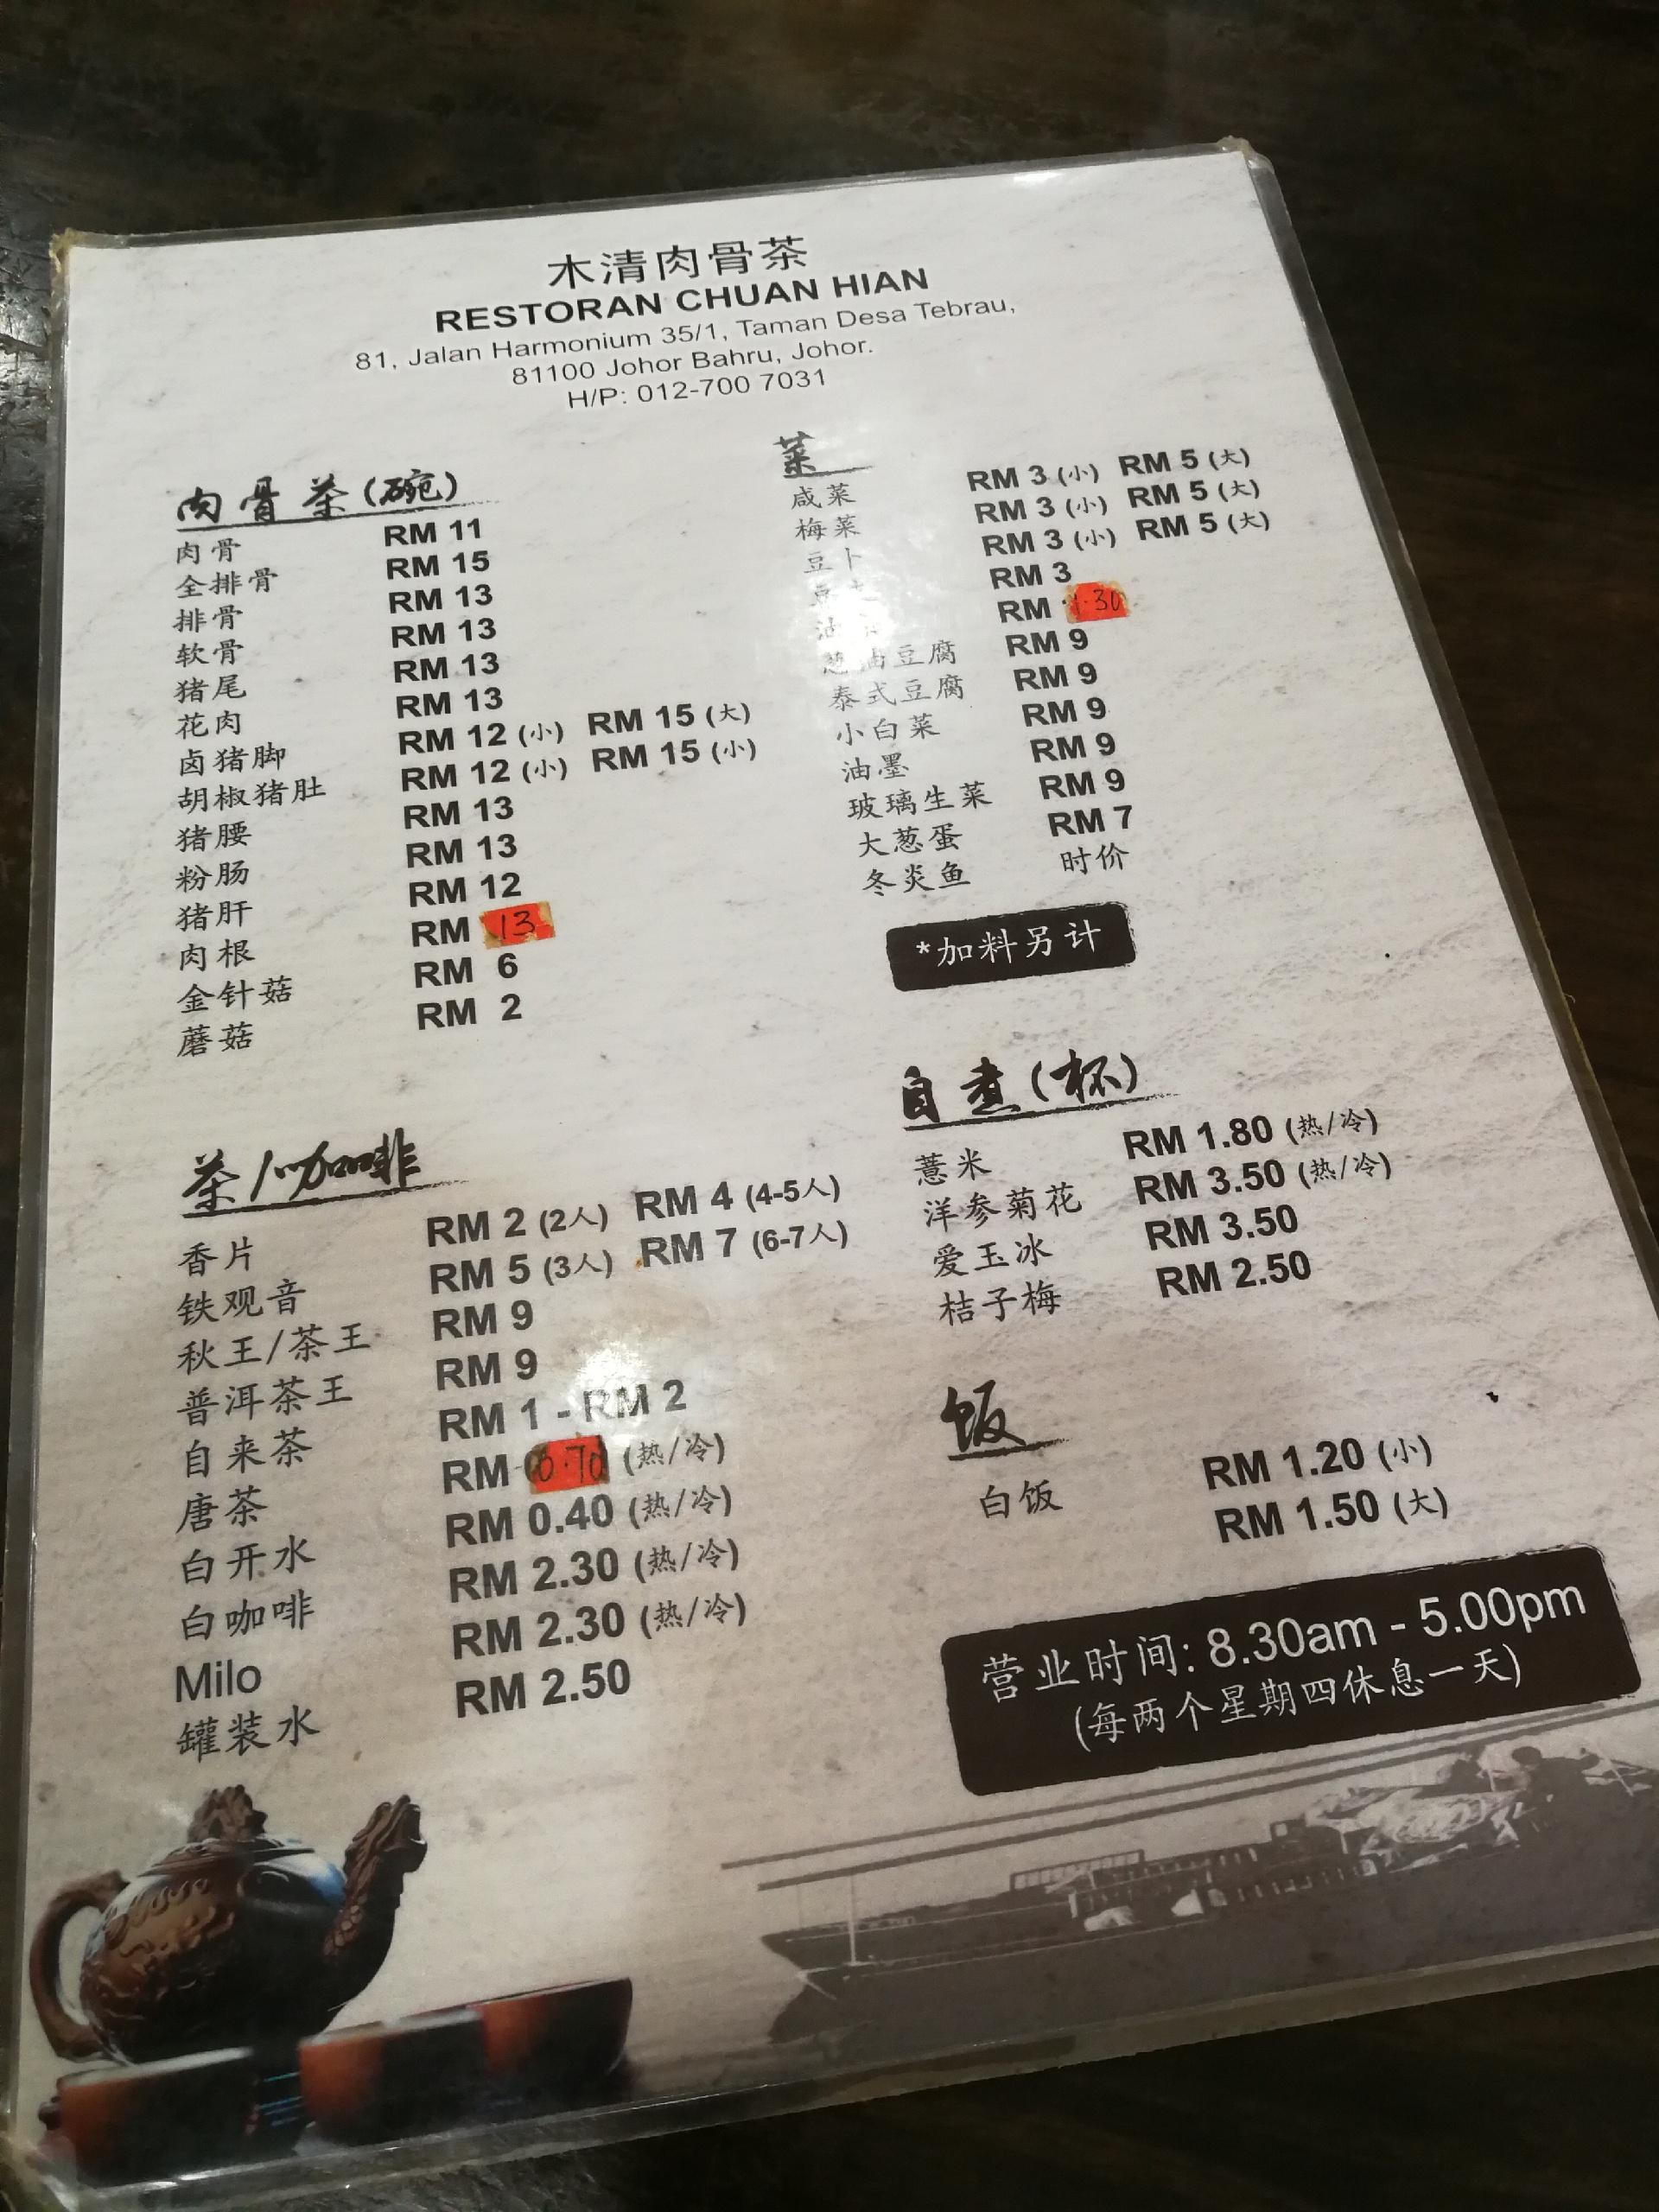 木清肉骨茶
RESTORAN CHUAN HIAN
81, Jalan Harmonium 35/1, Taman Desa Tebrau,
81100 Johor Bahru, Johor.
H/P: 012-700 7031
肉骨茶(碗)
肉骨 RM 11
全排骨 RM 15
排骨 RM 13
软骨 RM 13
猪尾 RM 13
花肉 RM 13
卤猪脚 RM 12 (小) RM 15 (大)
胡椒猪肚 RM 12 (小) RM 15 (小)
猪腰 RM 13
粉肠 RM 13
猪肝 RM 12
肉根 RM 13
金针菇 RM 6
蘑菇 RM 2
菜
咸菜 RM 3 (小) RM 5 (大)
梅菜 RM 3 (小) RM 5 (大)
豆卜 RM 3 (小) RM 5 (大)
豆 RM 3
油 RM 1.30
葱油豆腐 RM 9
泰式豆腐 RM 9
小白菜 RM 9
油墨 RM 9
玻璃生菜 RM 9
大葱蛋 RM 7
冬炎鱼 时价
*加料另计
茶/咖啡
香片 RM 2 (2人) RM 4 (4-5人)
铁观音 RM 5 (3人) RM 7 (6-7人)
秋王/茶王 RM 9
普洱茶王 RM 9
自来茶 RM 1 - RM 2
唐茶 RM 0.70 (热/冷)
白开水 RM 0.40 (热/冷)
白咖啡 RM 2.30 (热/冷)
Milo RM 2.30 (热/冷)
罐装水 RM 2.50
自煮(杯)
薏米 RM 1.80 (热/冷)
洋参菊花 RM 3.50 (热/冷)
爱玉冰 RM 3.50
桔子梅 RM 2.50
饭
白饭 RM 1.20 (小)
RM 1.50 (大)
营业时间: 8.30am - 5.00pm
(每两个星期四休息一天)